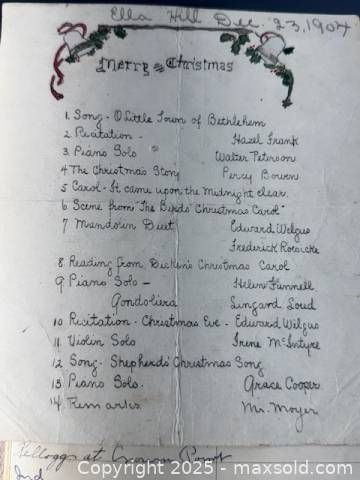 Ella Hill Dec. 23, 1904
Merry Christmas
1. Song - O Little Town of Bethlehem
2 Recitation - Hazel Frank
3. Piano Solo Walter Peterson
4 The Christmas Story Percy Bowen
5 Carol - It came upon the Midnight clear.
6 Scene from "The Birds' Christmas Carol"
7 Mandolin Duet Edward Welgus
Frederick
8 Reading from Dicken's Christmas Carol
Helen Funnell
9 Piano Solo -
Gondoliera Lingard Loud
10 Recitation - Christmas Eve - Edward Welgus
11 Violin Solo Irene McIntyre
12 Song - Shepherds' Christmas Song
13 Piano Solo. Grace Cooper
14 Remarks. Mr. Moyer
Kellogg at
Copyright 2025 - maxsold.com